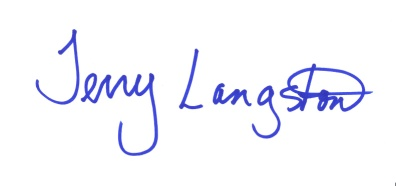 Jerry Langston